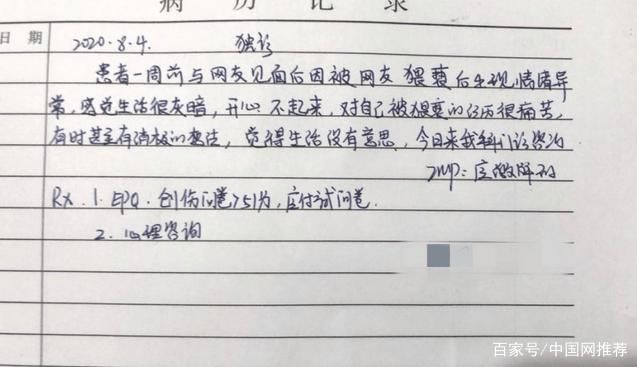 病 历 记 录
日 期
2020.8.4. 独诊
患者一周前与网友见面后因被网友猥亵后出现情绪异
常,感觉生活很灰暗,开心不起来,对自己被猥亵的经历很痛苦,
有时甚至有消极的想法,觉得生活没有意思,今日来我科门诊咨询
Imp: 应激障碍
Rx. 1. EPQ. 创伤问卷 , 应付式问卷.
2. 心理咨询
百家号/中国网推荐